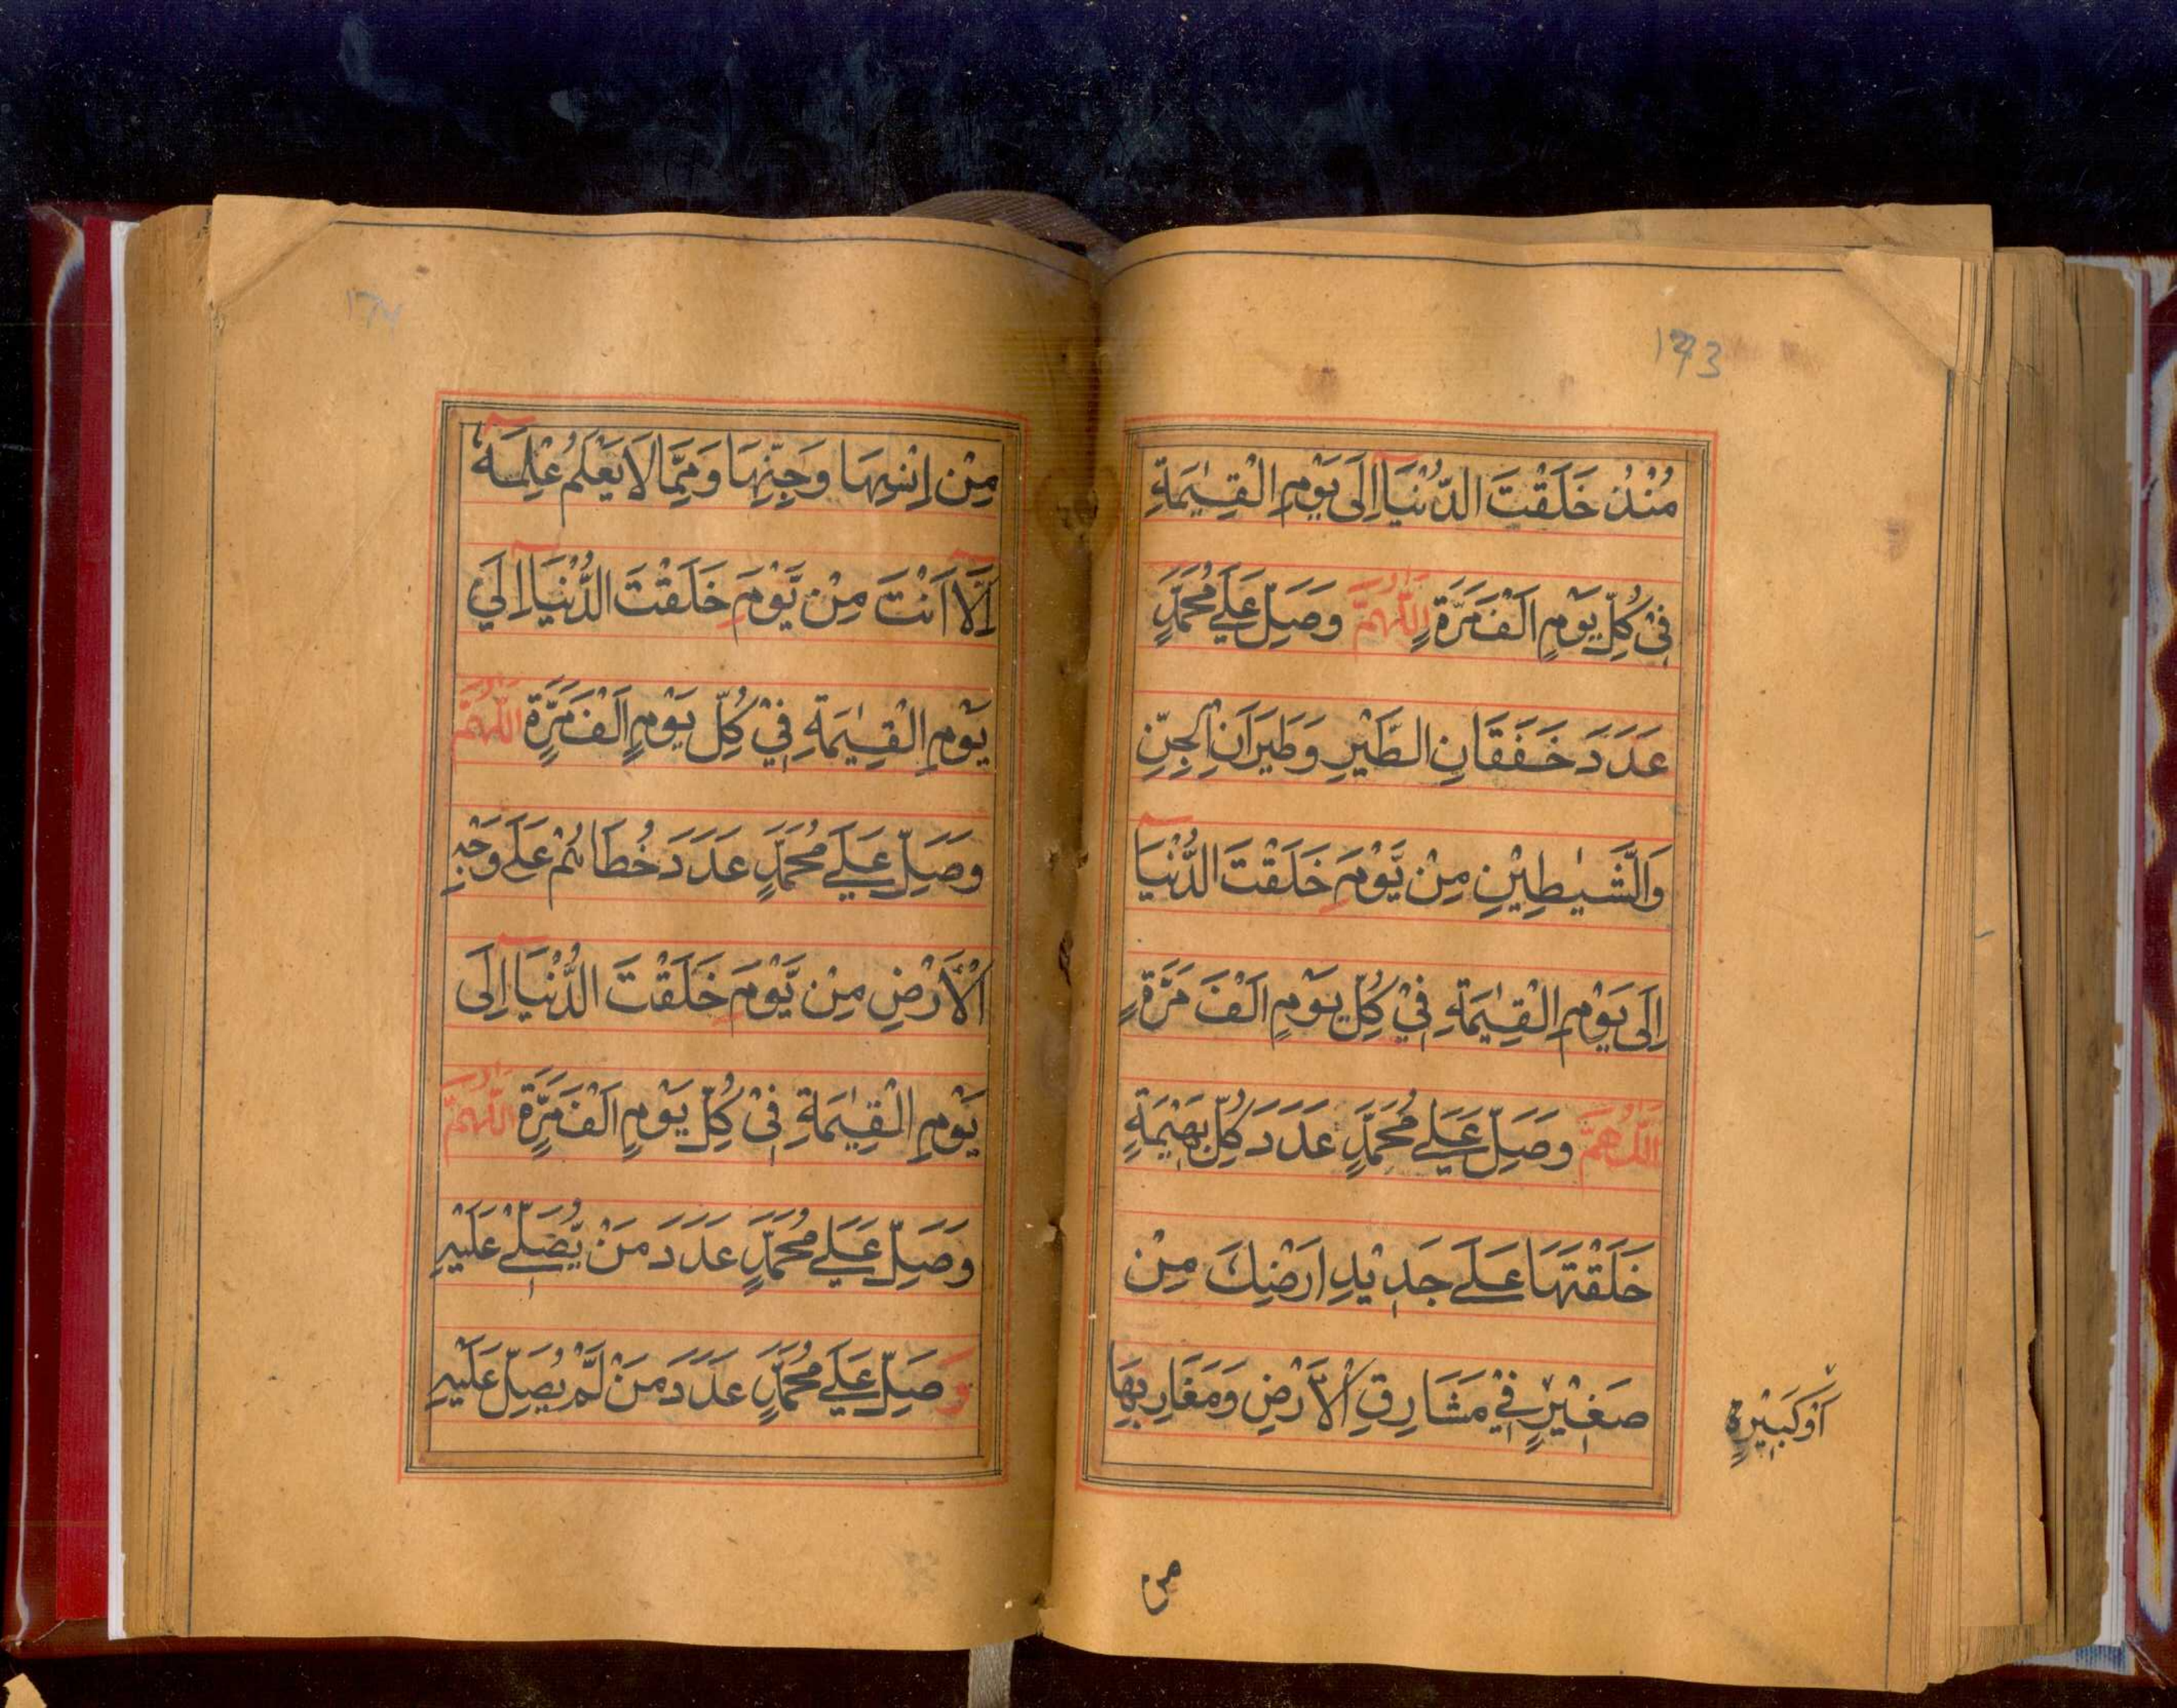 173
مُنْذُ خَلَقْتَ الدُّنْيَآ اِلَى يَوْمِ الْقِيٰمَةِ
فِيْ كُلِّ يَوْمٍ اَلْفَ مَرَّةٍ اَللّٰهُمَّ وَصَلِّ عَلٰے مُحَمَّدٍ
عَدَدَ خَفَقَانِ الطَّيْرِ وَطَيَرَانِ الْجِنِّ
وَالشَّيٰطِيْنِ مِنْ يَّوْمِ خَلَقْتَ الدُّنْيَآ
اِلَى يَوْمِ الْقِيٰمَةِ فِيْ كُلِّ يَوْمٍ اَلْفَ مَرَّةٍ
اَللّٰهُمَّ وَصَلِّ عَلٰے مُحَمَّدٍ عَدَدَ كُلِّ بَهِيْمَةٍ
خَلَقْتَهَا عَلٰے جَدِيْدِ اَرْضِكَ مِنْ
صَغِيْرٍ فِيْ مَشَارِقِ الْاَرْضِ وَمَغَارِبِهَا
اَوْ كَبِيْرٍ
من
174
مِنْ اِنْسِهَا وَجِنِّهَا وَمِمَّا لَا يَعْلَمُ عِلْمَهٗٓ
اِلَّآ اَنْتَ مِنْ يَّوْمِ خَلَقْتَ الدُّنْيَآ اِلَي
يَوْمِ الْقِيٰمَةِ فِيْ كُلِّ يَوْمٍ اَلْفَ مَرَّةٍ اَللّٰهُمَّ
وَصَلِّ عَلٰے مُحَمَّدٍ عَدَدَ خُطَاهُمْ عَلٰے وَجْهِ
الْاَرْضِ مِنْ يَّوْمِ خَلَقْتَ الدُّنْيَآ اِلَى
يَوْمِ الْقِيٰمَةِ فِيْ كُلِّ يَوْمٍ اَلْفَ مَرَّةٍ اَللّٰهُمَّ
وَصَلِّ عَلٰے مُحَمَّدٍ عَدَدَ مَنْ يُّصَلِّيْ عَلَيْهِ
وَصَلِّ عَلٰے مُحَمَّدٍ عَدَدَ مَنْ لَّمْ يُصَلِّ عَلَيْهِ